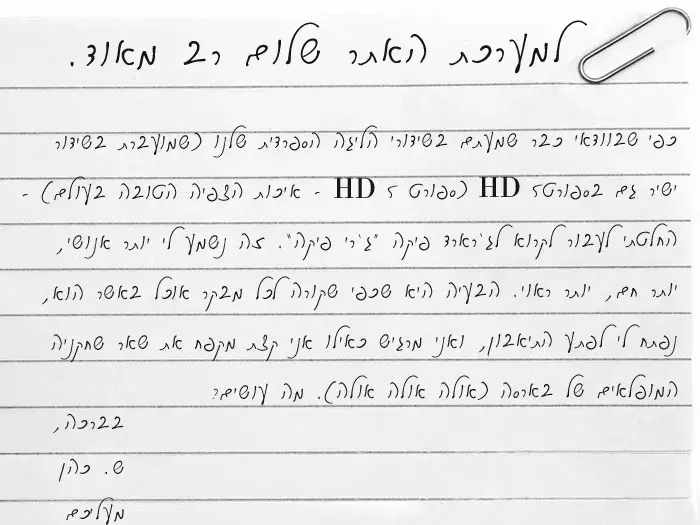 למערכת האתר שלום רב מאוד.
כפי שבוודאי כבר שמעתם בשידורי הליגה הספרדית שלנו (שמועברת בשידור
ישיר גם בספורט5 HD (ספורט 5 HD - איכות הצפיה הטובה בעולם) -
החלטתי לעבור לקרוא לג'ראRד פיקה "ג'רי פיקה". זה נשמע לי יותר אנושי,
יותר חם, יותר ראוי. הבעיה היא שכפי שקורה לכל מבקר אוכל באשר הוא,
נפתח לי לפתע התיאבון, ואני מרגיש כאילו אני קצת מקפח את שאר שחקניה
המופלאים של בארסה (אולה אולה אולה). מה עושים?
בברכה,
ש. כהן
מעליכם